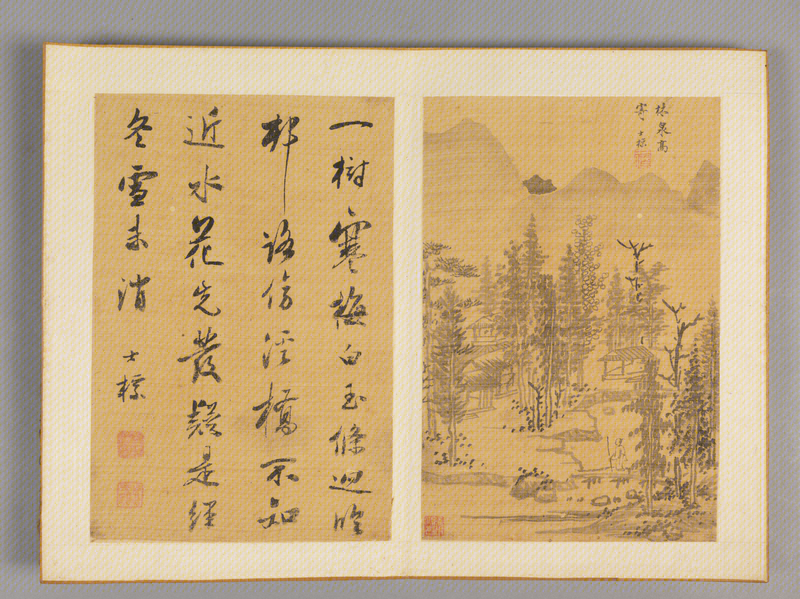 林泉高
寄 士標
一樹寒梅白玉條迥臨
邨路傍溪橋不知
近水花先發疑是經
冬雪未消
士標